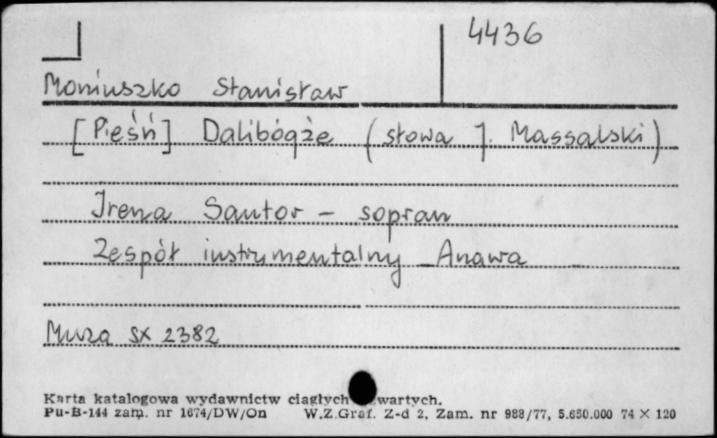 4436
Moniuszko Stanisław
[Pieśń] Dalibógże (słowa J. Massalski)
Irena Santor - sopran
Zespół instrumentalny Anawa
Muza SX 2382
Karta katalogowa wydawnictw ciągłych wartych.
Pu-B-144 zam. nr 1674/DW/On W.Z.Graf. Z-d 2, Zam. nr 988/77, 5.650.000 74 × 120